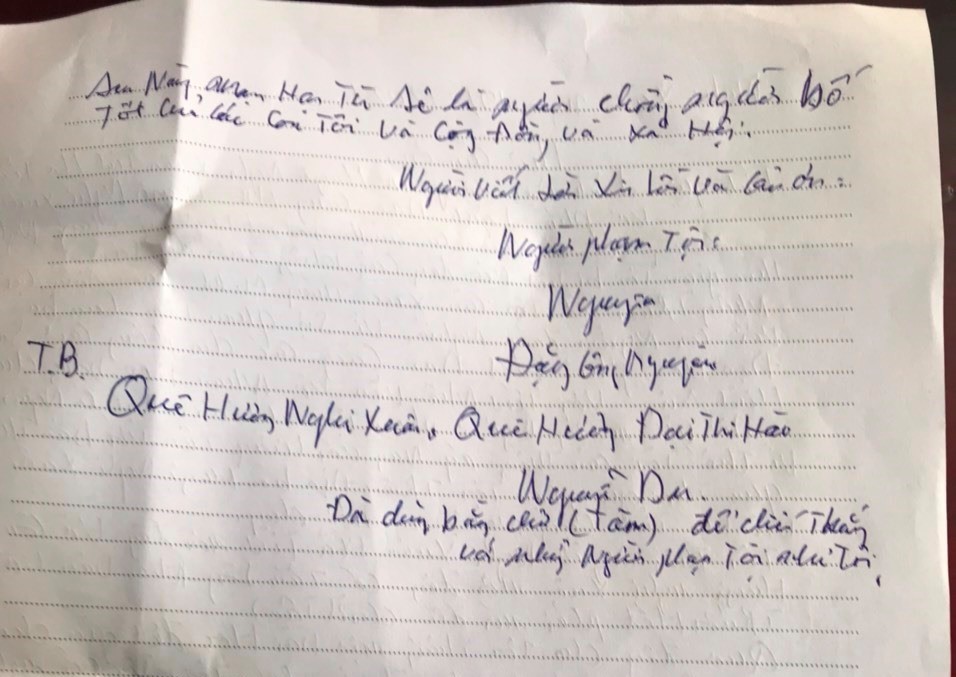 Sau Này mạn Hạn Tù sẽ là người chồng người bố
Tốt của các con Tôi và Cộng đồng và xã Hội.
Người viết đơn xin lỗi và cảm ơn:
Người phạm Tội:
Nguyên
Đặng Công Nguyên
T.B.
Quê Hương Nghi Xuân, Quê Hương Đại Thi Hào
Nguyễn Du.
Đã dùng bằng chữ (Tâm) để chiến Thắng
với những Người phạm Tội như Tôi,